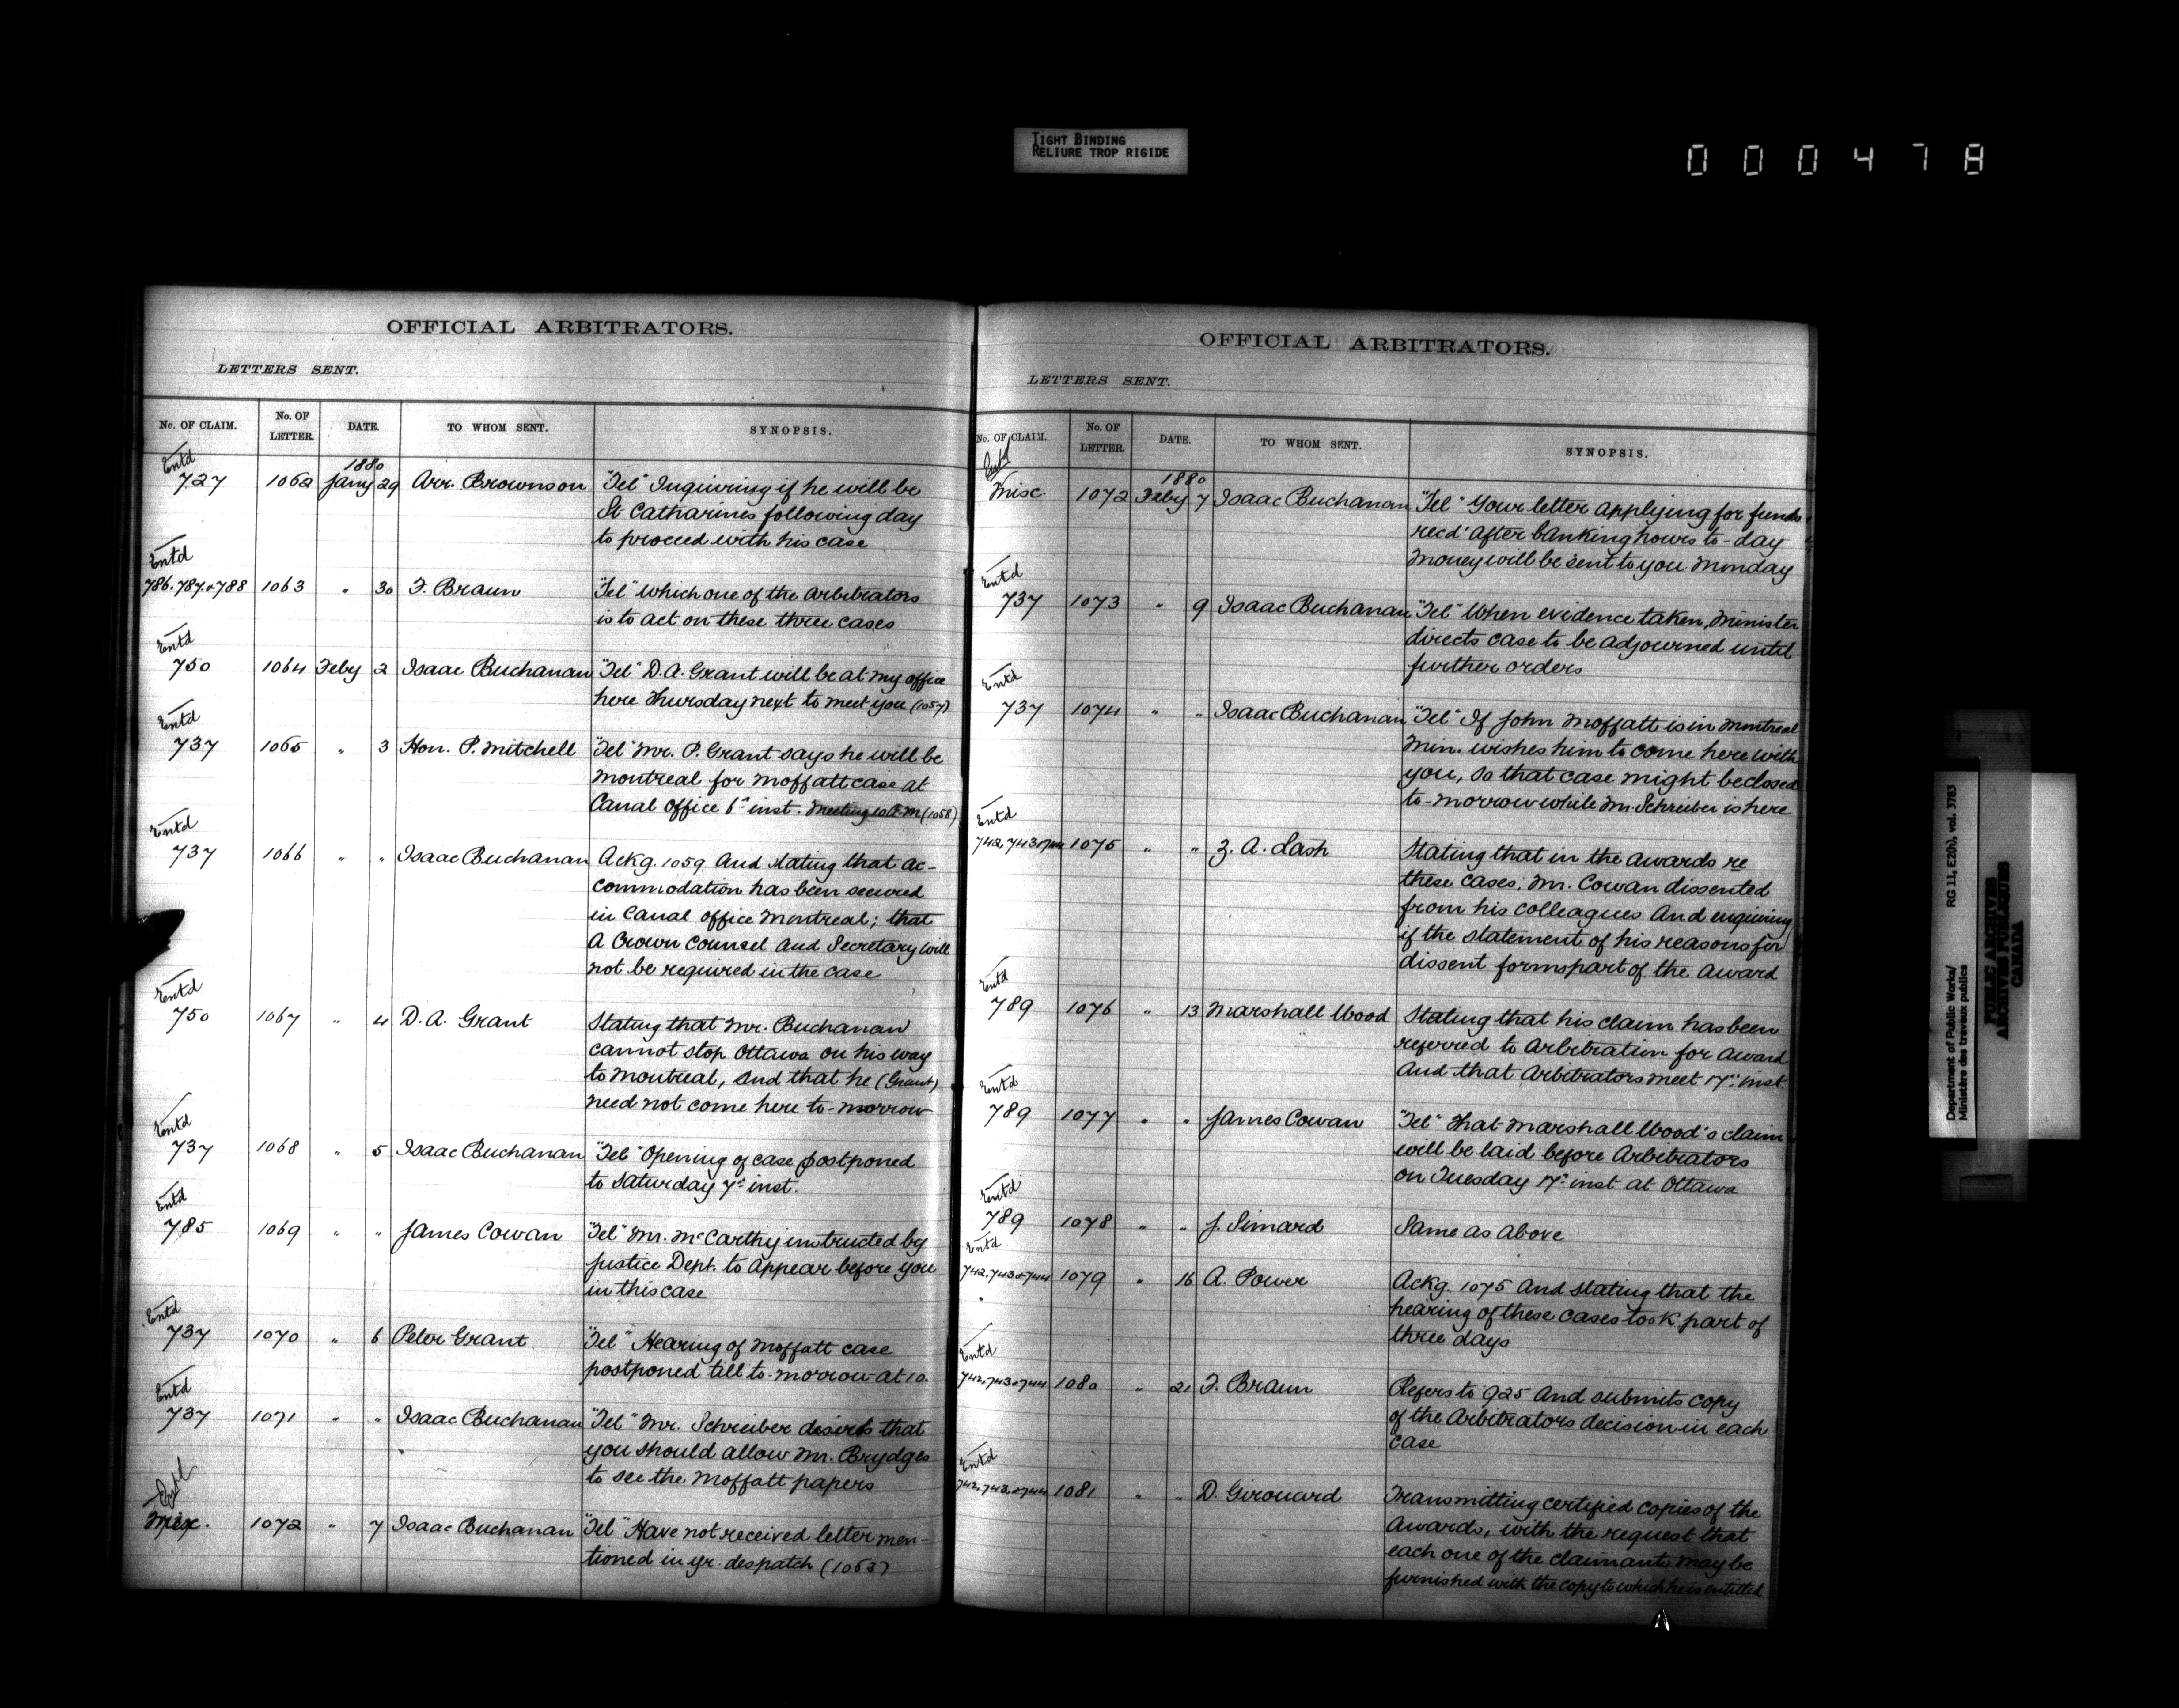 TIGHT BINDING
RELIURE TROP RIGIDE
000478
OFFICIAL ARBITRATORS.
LETTERS SENT.
No. OF CLAIM. No. OF LETTER. DATE. TO WHOM SENT. SYNOPSIS.
Entd
1880
727 1062 Jany 29 Arr. Brownson "Tel" Inquiring if he will be
St Catharines following day
to proceed with his case
Entd
786.787.&788 1063 " 30 F. Braun "Tel" which one of the Arbitrators
is to act on these three cases
Entd
750 1064 Feby 2 Isaac Buchanan "Tel" D.A. Grant will be at my office
here Thursday next to meet you (1057)
Entd
737 1065 " 3 Hon. P. Mitchell "Tel" Mr. P. Grant says he will be
Montreal for Moffatt case at
Canal Office 6th inst. Meeting 10 A.M (1058)
Entd
737 1066 " " Isaac Buchanan Ackg. 1059 And stating that ac-
commodation has been secured
in Canal Office Montreal; that
A Crown Counsel and Secretary will
not be required in the case
Entd
750 1067 " 4 D.A. Grant Stating that Mr. Buchanan
cannot stop Ottawa on his way
to Montreal, and that he (Grant)
need not come here to-morrow
Entd
737 1068 " 5 Isaac Buchanan "Tel" Opening of case postponed
to Saturday 7th inst.
Entd
785 1069 " " James Cowan "Tel" Mr. McCarthy instructed by
Justice Dept. to Appear before you
in this case
Entd
737 1070 " 6 Peter Grant "Tel" Hearing of Moffatt case
postponed till to-morrow at 10.
Entd
737 1071 " " Isaac Buchanan "Tel" Mr. Schreiber desires that
you should allow Mr. Brydges
to see the Moffatt papers
Misc. 1072 " 7 Isaac Buchanan "Tel" Have not received letter men-
tioned in yr. despatch (1063)
OFFICIAL ARBITRATORS.
LETTERS SENT.
No. OF CLAIM. No. OF LETTER. DATE. TO WHOM SENT. SYNOPSIS.
Entd
1880
Misc. 1072 Feby 7 Isaac Buchanan "Tel" Your letter applying for funds
recd after banking hours to-day
Money will be sent to you Monday
Entd
737 1073 " 9 Isaac Buchanan "Tel" When evidence taken, Minister
directs case to be adjourned until
further orders
Entd
737 1074 " " Isaac Buchanan "Tel" If John Moffatt is in Montreal
Min. wishes him to come here with
you, so that case might be closed
to-morrow while Mr. Schreiber is here
Entd
742, 743 & 744 1075 " " Z. A. Lash Stating that in the awards re
these cases, Mr. Cowan dissented
from his colleagues And enquiring
if the statement of his reasons for
dissent forms part of the Award
Entd
789 1076 " 13 Marshall Wood Stating that his claim has been
referred to Arbitration for Award
And that Arbitrators meet 17th inst
Entd
789 1077 " " James Cowan "Tel" That Marshall Wood's claim
will be laid before Arbitrators
on Tuesday 17th inst at Ottawa
Entd
789 1078 " " J. Simard Same as Above
Entd
742.743 & 744 1079 " 16 A. Power Ackg. 1075 And stating that the
hearing of these cases took part of
three days
Entd
742,743 & 744 1080 " 21 F. Braun Refers to 925 And submits copy
of the Arbitrators decision in each
case
Entd
742,743, & 744 1081 " " D. Girouard Transmitting certified copies of the
Awards, with the request that
each one of the claimants may be
furnished with the copy to which he is entitled
Department of Public Works/ RG 11, E2(b), vol. 3783
Ministère des travaux publics
PUBLIC ARCHIVES
ARCHIVES PUBLIQUES
CANADA